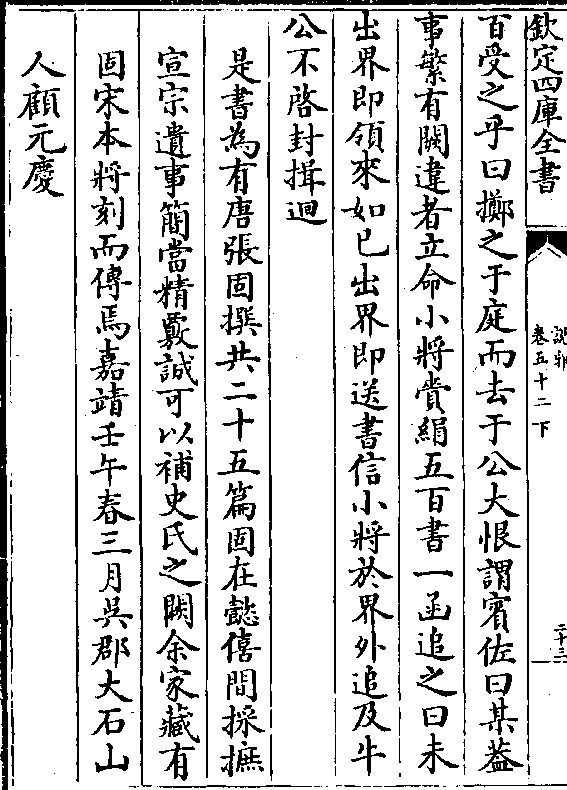 欽定四庫全書
說郛
卷五十二下
二十三
百受之乎曰擲之于庭而去于公大恨謂賓佐曰某葢
事繁有闕違者立命小將賫絹五百書一函追之曰未
出界即領來如已出界即送書信小將於界外追及牛
公不啓封揖迴
是書為有唐張固撰共二十五篇固在懿僖間採摭
宣宗遺事簡當精覈誠可以補史氏之闕余家藏有
固宋本將刻而傳焉嘉靖壬午春三月吳郡大石山
人顧元慶